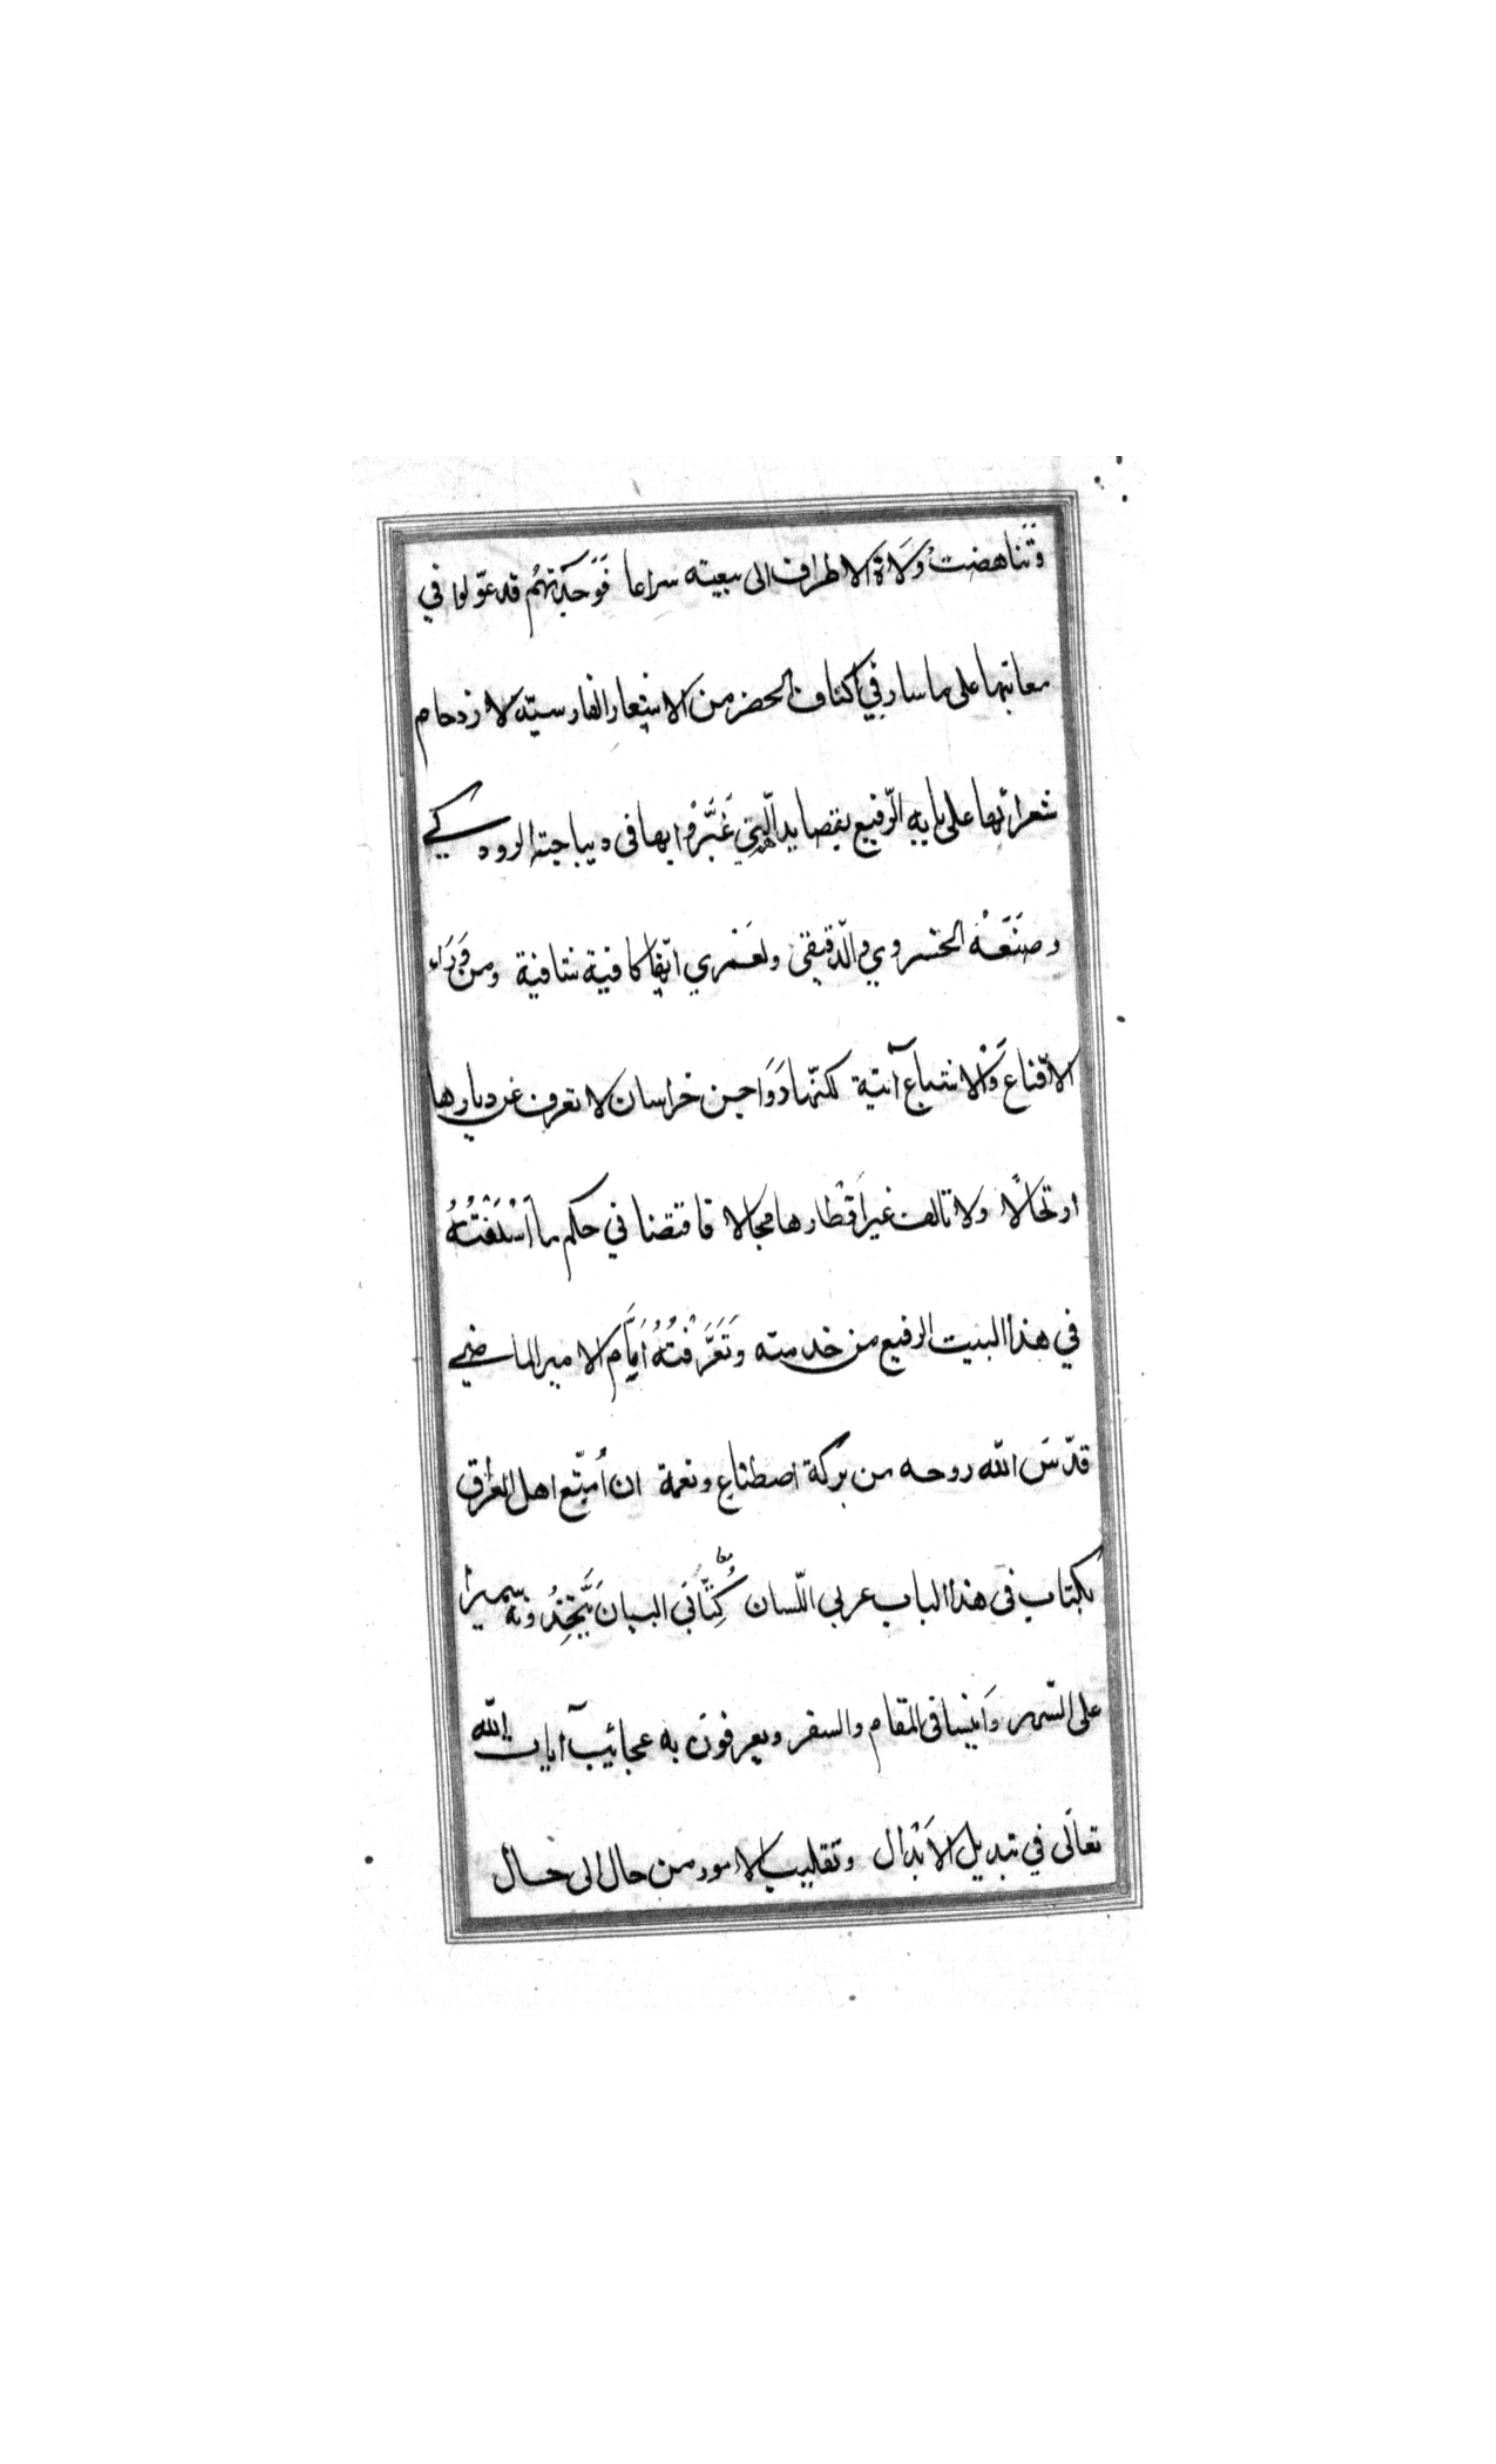 وَتَناهضتْ وُلَاة الاطراف الى بيعته سراعا فَوَجَدْتهُم قد عوّلوا في
معانيها على ما سار في اكناف الحضر من الاشعار الفارسيّة لازدحام
شعرائها على بابه الرّفيع بقصايد الّتي غَبَّرُوا بها فى ديباجة الرودكي
وصَنْعَة الخسروي والدّقيقى ولعَمْري انّها كافية شافية ومن وَرَاء
الاقناع وَالاشباع آتية لكنّها دَوَاجن خراسان لا تعرف غير ديارها
ارتحالًا ولا تالف غير اَقْطارها مجالا فاقتضا في حكم ما اَسْلَفْتُهُ
في هذا البيت الرفيع من خدمته وَتَعَرَّفْتُهُ اَيَّام الامير الماضي
قدّسَ الله روحه من بركة اصطناع ونعمة ان اُمتّع اهل العراق
بكتاب فى هذا الباب عربى اللّسان كِتَّابي البيان يَتَّخِذُونه سميرا
على السّهر وَانيسا فى المقام والسفر ويعرفون به عجائب آيات الله
تعالَى في تبديل الاَبْدال وتقليب الامور من حال الى حال